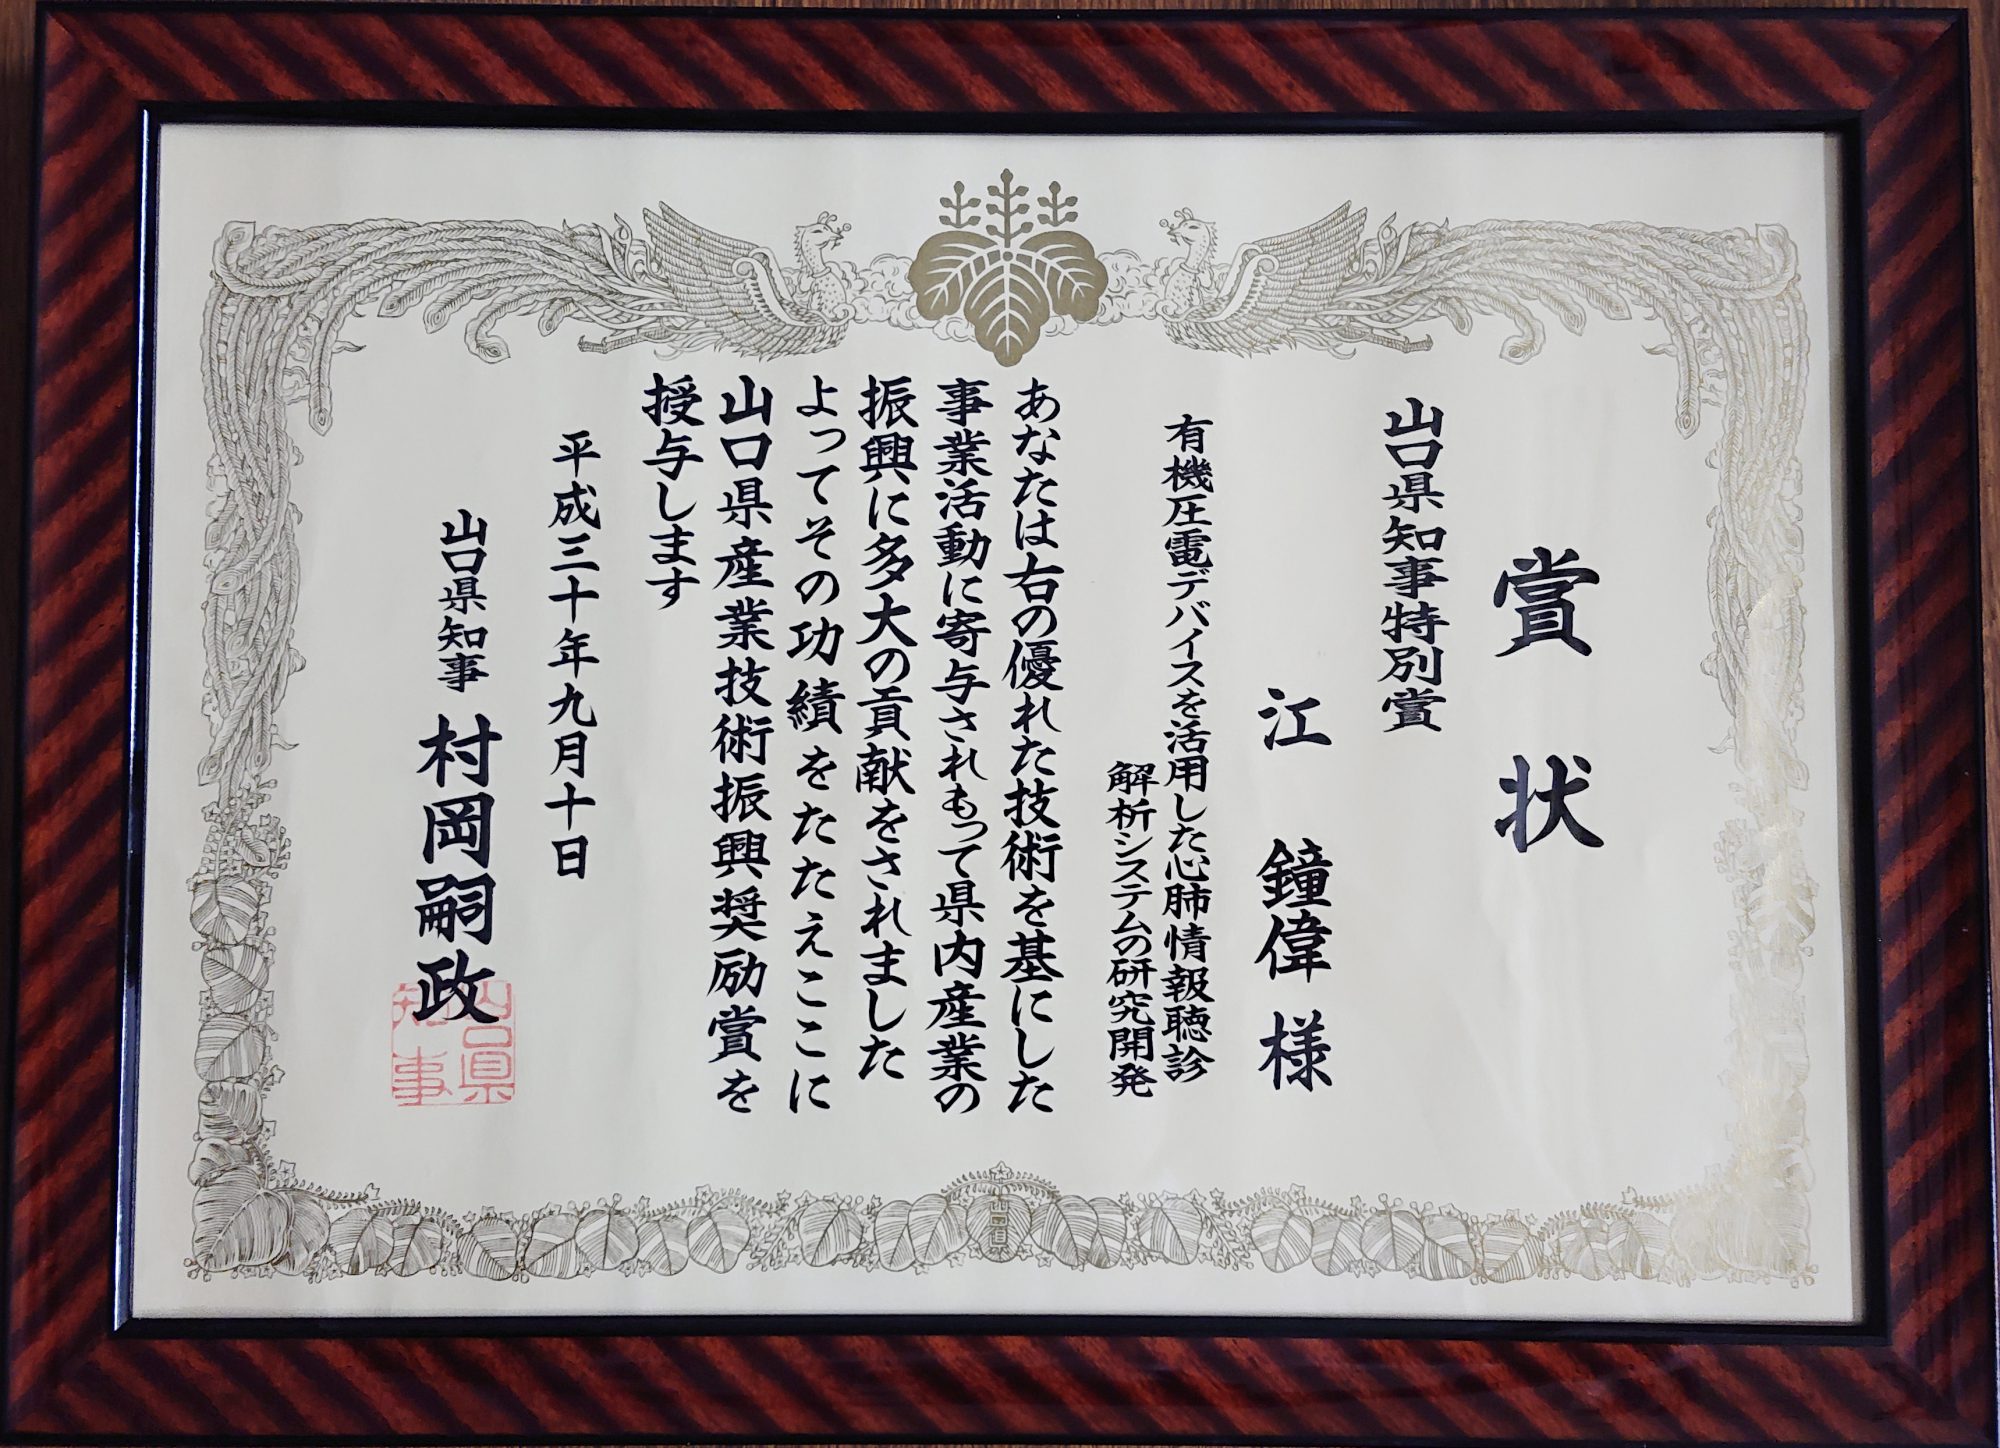 賞状
山口県知事特別賞
江 鐘偉 様
有機圧電デバイスを活用した心肺情報聴診
解析システムの研究開発
あなたは右の優れた技術を基にした
事業活動に寄与されもって県内産業の
振興に多大の貢献をされました
よってその功績をたたえここに
山口県産業技術振興奨励賞を
授与します
平成三十年九月十日
山口県知事 村岡嗣政
山口県
知事
山口県